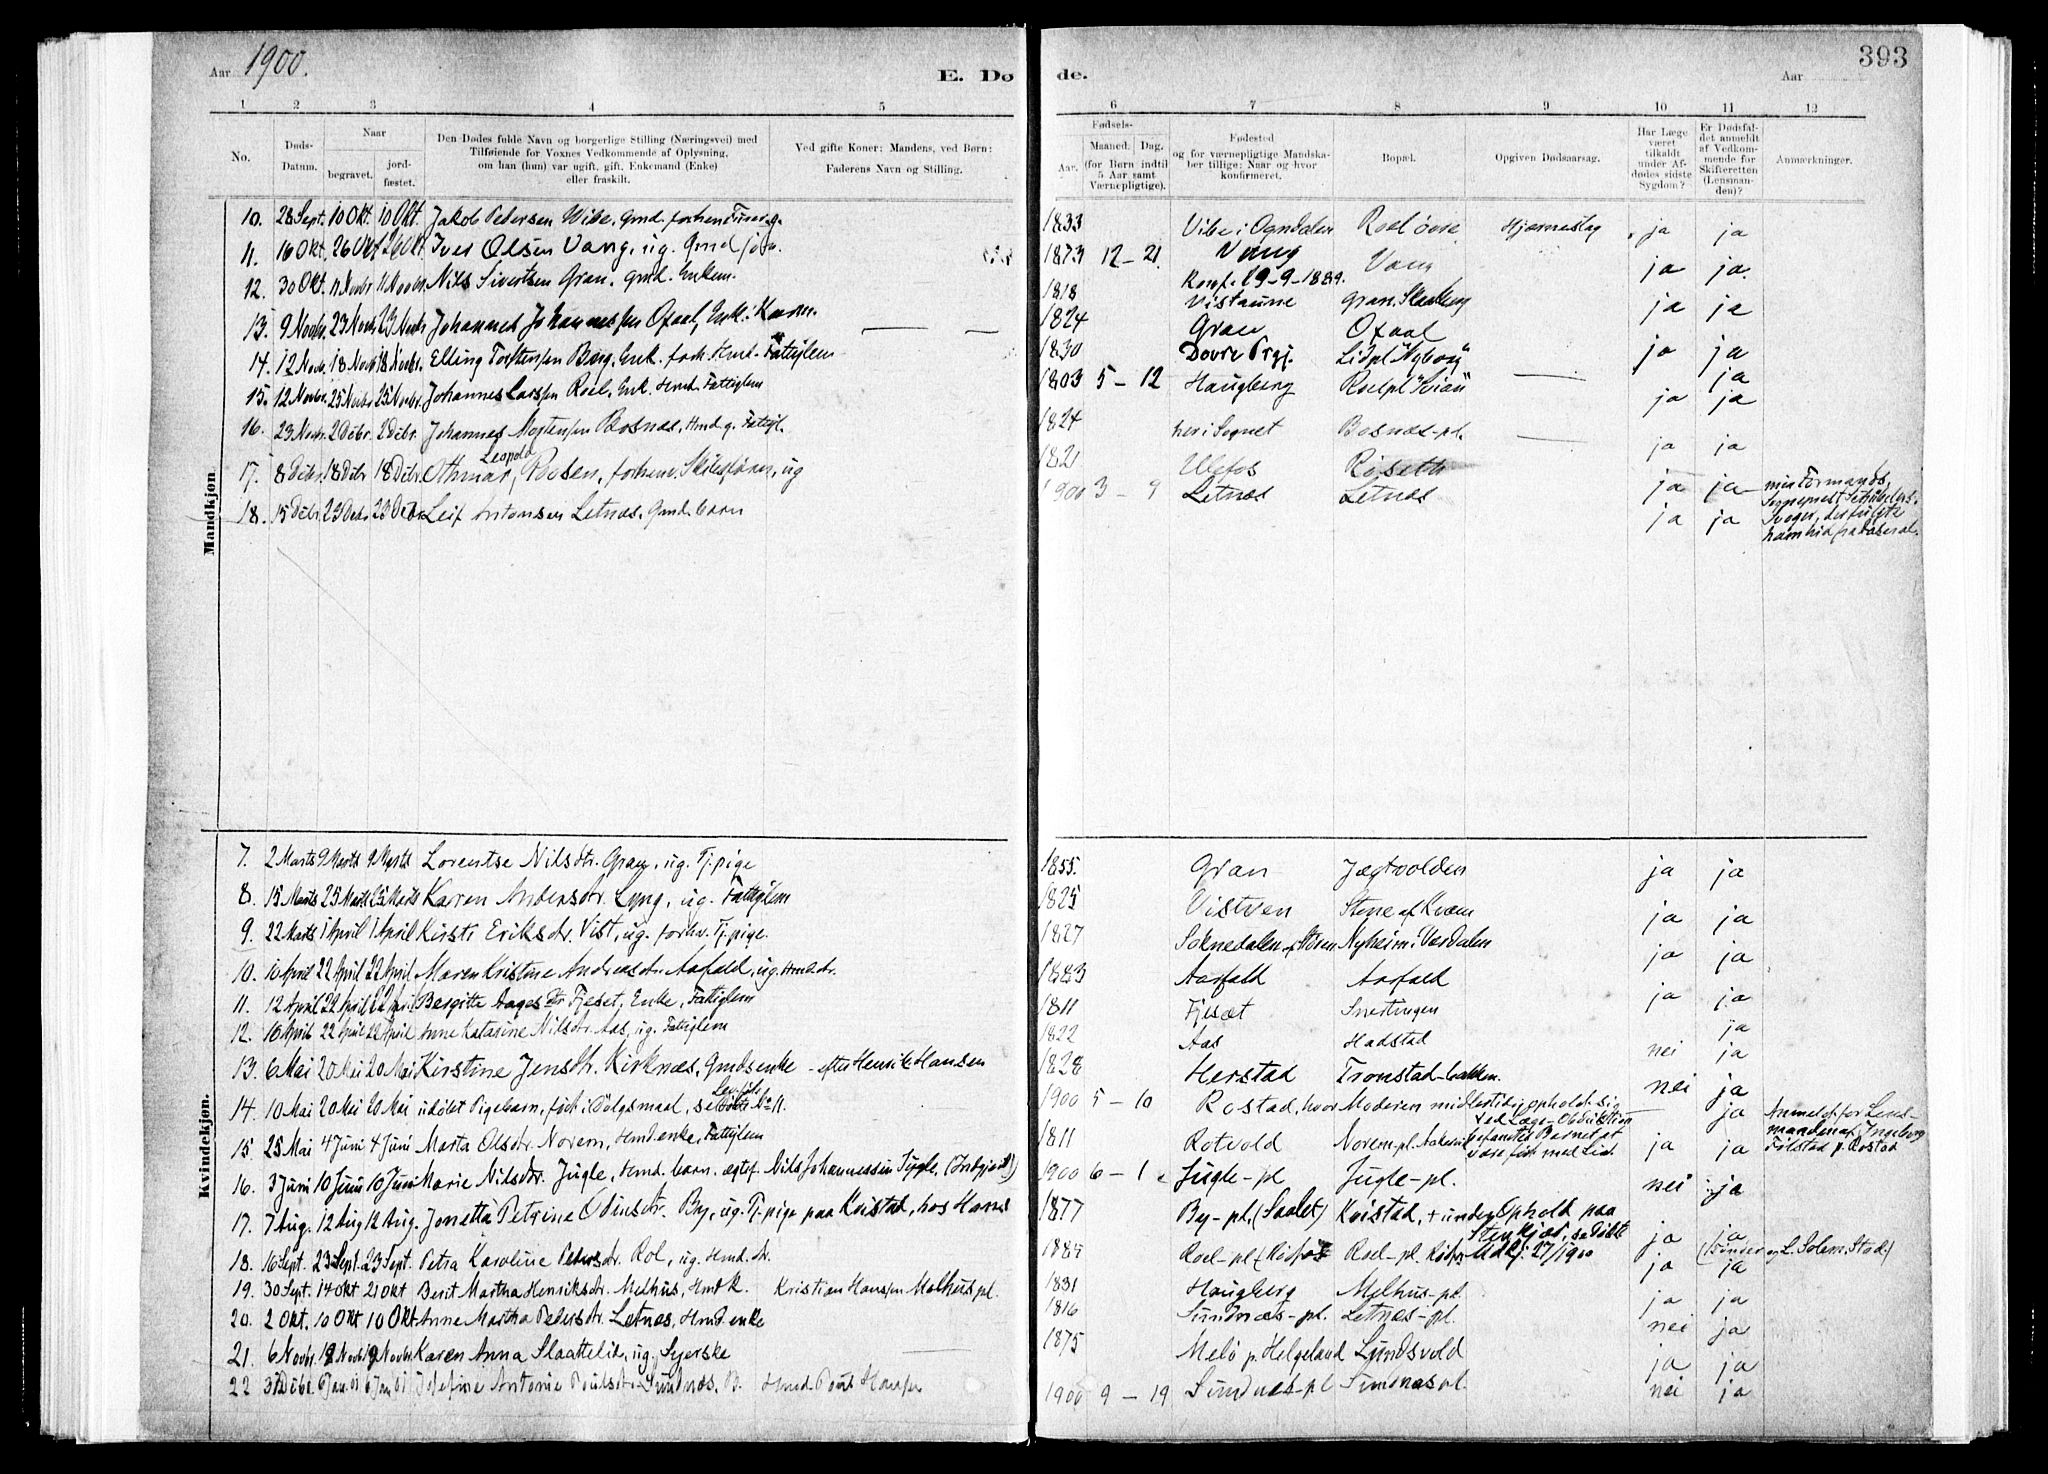 Aar 1900.
E. Dø
de.
Aar
393
1 2 3 4 5
6 7 8 9 10 11 12
No.
Døds-
Datum.
Naar
begravet.
jord-
fæstet.
Den Dødes fulde Navn og borgerlige Stilling (Næringsvei) med
Tilføiende for Voxnes Vedkommende af Oplysning,
om han (hun) var ugift, gift, Enkemand (Enke)
eller fraskilt.
Ved gifte Koner: Mandens, ved Børn:
Faderens Navn og Stilling.
Fødsels-
Aar.
Maaned.
Dag.
(for Børn indtil
5 Aar samt
Værnepligtige).
Fødested
og for værnepligtige Mandska-
ber tillige: Naar og hvor
konfirmeret.
Bopæl.
Opgiven Dødsaarsag.
Har Læge
været
tilkaldt
under Af-
dødes sidste
Sygdom?
Er Dødsfal-
det anmeldt
af Vedkom-
mende for
Skifteretten
(Lensman-
den)?
Anmærkninger.
Mandkjøn
10. 28 Sept. 10 Okt. 10 Okt. Jakob Pedersen Wibe, Gmd. 1833 Vibe i Ogndalen Roel övre Hjerneslag ja ja
11. 16 Okt. 26 Okt 26 Okt. Iver Olsen Vang, ug. Gmd 1873 12 – 21. Vang Vang ja ja.
Konf. 19-9-1889.
12. 30 Okt. 11 Novbr 11 Novbr. Nils Sivertsen Gran, Gmd. Enkem. 1818 Vistaune Gran, ja ja
13. 9 Novbr. 23 Novbr 23 Novbr Johannes Johannessen Oxaal, Enk. 1824 Gran Oxaal ja ja
14. 12 Novbr. 18 Novbr 18 Novbr. Elling Torstensen Berg, Enk. forh. Hmd. Fattiglem 1830 Dovre Prgj. Lidpl. ja
15. 12 Novbr. 25 Novbr 25 Novbr. Johannes Larssen Roel, Enk. Hmd. Fattiglem 1803 5 – 12 Haugberg Roelpl. ja ja
16. 23 Novbr. 2 Debr. 2 Debr. Johannes Mortensen Bosnæs, Hmd g. Fattigl. 1824 her i Sognet Bosnæs-pl. ja ja
17. 8 Debr. 18 Debr 18 Debr. Othmar Leopold Poosen, forhenv. ug 1821 Ulefos Röseth ja ja
18. 15 Debr 23 Debr 23 Debr Leif Antonsen Letnæs, Gmd. barn 1900 3 – 9 Letnæs Letnæs ja ja
min Formands,
Sogneprest Schiølbergs
Svoger, der fulgte
ham hid
Kvindekjøn.
7. 2 Marts 9 Marts 9 Marts Lorentse Nilsdtr. Gran, ug. Tj.pige 1855. Gran Jægtvolden ja ja
8. 15 Marts 25 Marts 25 Marts Karen Andersdtr. Lyng, ug. Fattiglem 1825 Vistven Stene af Kvam ja ja
9. 22 Marts 1 April 1 April Kirsti Eriksdtr. Vist, ug. forhv. Tj.pige. 1827 Soknedalen Støren Nyheim i Værdalen ja ja
10. 10 April 22 April 22 April Maren Kristine Andreasdtr. Aasfald, ug. Hmd.dtr. 1883 Aasfald Aasfald ja ja
11. 12 April 22 April 22 April Bergitte Aagesdtr Fjeset, Enke, Fattiglem 1811 Fjesæt ja
12. 16 April 22 April 22 April Anne Katarine Nilsdtr. Aas, ug. Fattiglem 1822 Aas Hadstad nei ja
13. 6 Mai 20 Mai 20 Mai Kirstine Jensdtr. Kirknæs, Gmdsenke – efter Henrik Hansen 1828 Herstad Tronstad-bakken. nei ja
14. 10 Mai 20 Mai 20 Mai udöbt Pigebarn, født i Dölgsmaal, se No 11. 1900 5 – 10 Rostad, hvor Moderen midlertidig opholdt sig ja
ved Læge-Obduktion
befandtes Barnet at
være født med Liv.
Anmeldt for Lens-
manden af Ingeborg
Tilstad p. Rostad
15. 25 Mai 4 Juni 4 Juni Marta Olsdtr. Norem, Hmd.enke, Fattiglem 1811 Rotvold Norem-pl. ja ja
16. 3 Juni 10 Juni 10 Juni Marie Nilsdtr. Jugle, Hmd. barn. ægtef. Nils Johannessen Jugle. 1900 6 – 1 Jugle-pl Jugle-pl. nei ja
17. 7 Aug. 12 Aug 12 Aug. Jonetta Petrine Odinsdtr. By, ug. Tj.pige paa Kvistad, hos Hans 1877 By-pl. (Saalet) Kvistad, + under Ophold paa ja ja
Stenkjær, se Döbte
18. 16 Sept. 23 Sept. 23 Sept. Petra Karoline Pedersdtr. Rol, ug. Hmd. dtr. Roel-pl. Roel-pl. 27/1900 ja ja
19. 30 Sept. 14 Okt 21 Okt Berit Martha Henriksdtr. Melhus, Hmd k. Kristian Hanssen Melhus pl. 1831 Haugberg Melhus-pl. ja ja
20. 2 Okt. 10 Okt 10 Okt Anne Martha Pedersdtr. Letnes, Hmd.enke 1816 Sundnæs-pl. Letnæs-pl. nei ja
21. 6 Novbr. 12 Novbr 12 Novbr. Karen Anna Slaattelid, ug. Syerske 1875 Melö p. Helgeland Lundsvold ja ja
22 31 Debr. 6 Jan. 01 6 Jan 01 Josefine Antonie Paulsdtr. Sundnæs, B. Hmd. Paul 1900 9 – 19 Sundnæs-pl Sundnæs pl. nei ja